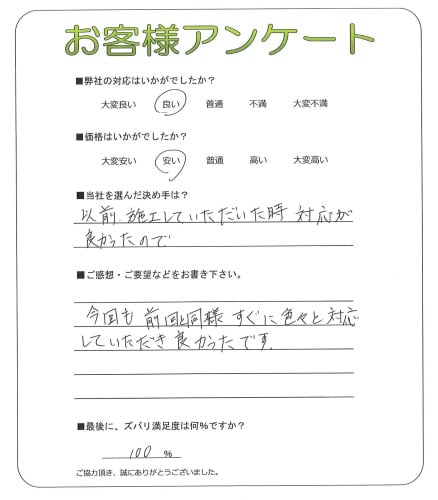 お客様アンケート
■弊社の対応はいかがでしたか?
大変良い 良い 普通 不満 大変不満
■価格はいかがでしたか?
大変安い 安い 普通 高い 大変高い
■当社を選んだ決め手は?
以前、施工していただいた時 対応が
良かったので
■ご感想・ご要望などをお書き下さい。
今回も 前回と同様 すぐに 色々と対応
していただき 良かったです。
■最後に、ズバリ満足度は何%ですか?
100 %
ご協力頂き、誠にありがとうございました。